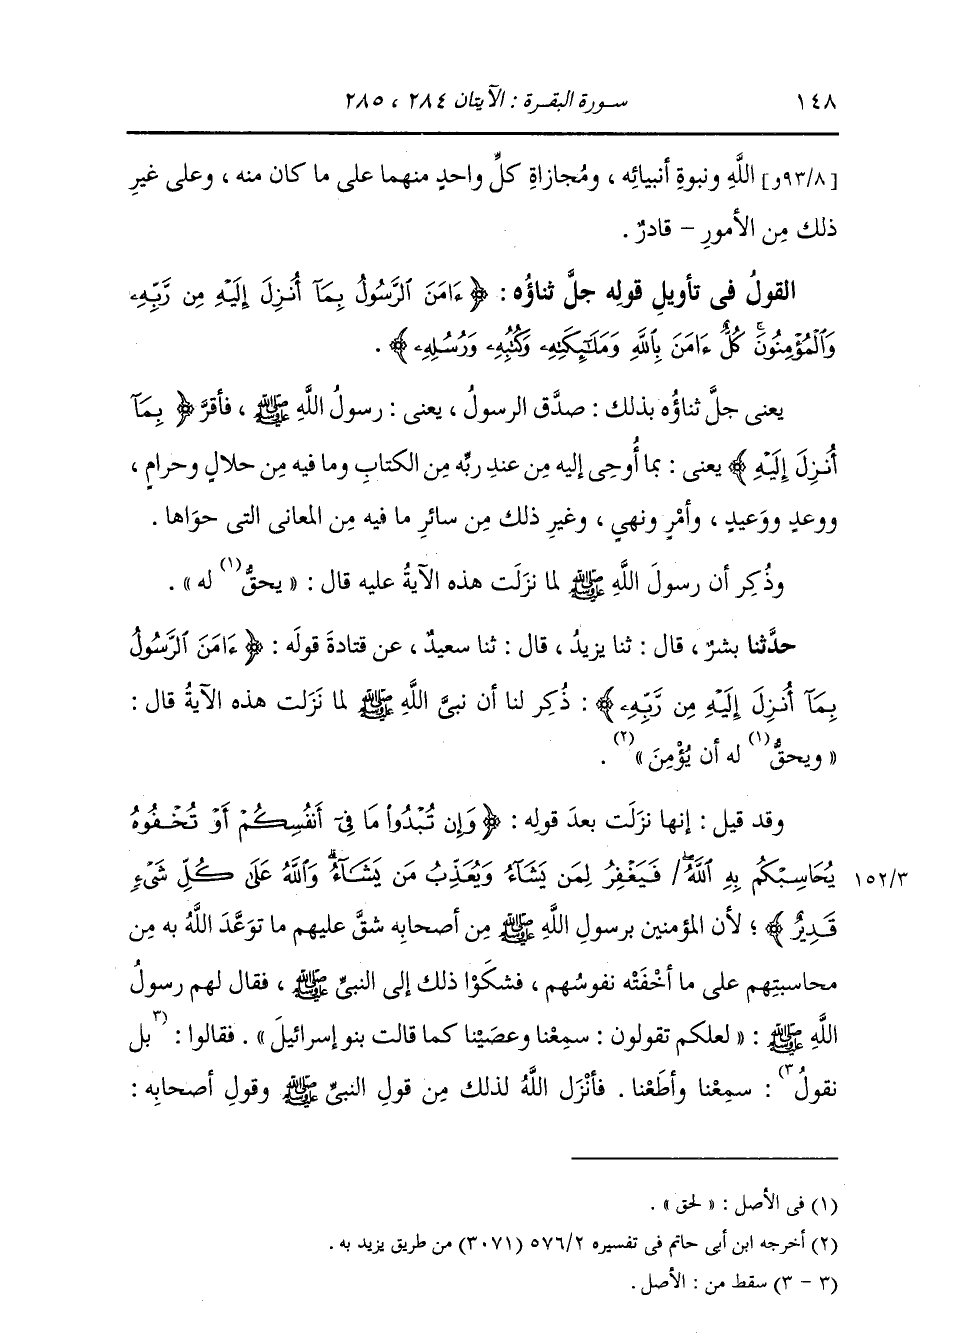 ١٤٨ سورة البقرة : الآيتان ٢٨٤ ، ٢٨٥
[٩٣/٨و] اللَّهِ ونبوةِ أنبيائِه ، ومُجازاةِ كلِّ واحدٍ منهما على ما كان منه ، وعلى غيرِ
ذلك مِن الأمورِ – قادرٌ .
القولُ فى تأويلِ قولِه جلَّ ثناؤُه : ﴿ ءَامَنَ ٱلرَّسُولُ بِمَآ أُنزِلَ إِلَيْهِ مِن رَّبِّهِۦ
وَٱلْمُؤْمِنُونَۚ كُلٌّ ءَامَنَ بِٱللَّهِ وَمَلَٰٓئِكَتِهِۦ وَكُتُبِهِۦ وَرُسُلِهِۦ ﴾ .
يعنى جلَّ ثناؤُه بذلك : صدَّق الرسولُ ، يعنى : رسولُ اللَّهِ ﷺ ، فأقرَّ ﴿ بِمَآ
أُنزِلَ إِلَيْهِ ﴾ يعنى : بما أُوحِى إليه مِن عندِ ربِّه مِن الكتابِ وما فيه مِن حلالٍ وحرامٍ ،
ووعدٍ ووَعيدٍ ، وأمْرٍ ونهيٍ ، وغيرِ ذلك مِن سائرِ ما فيه مِن المعانى التى حوَاها .
وذُكِر أن رسولَ اللَّهِ ﷺ لما نزَلَت هذه الآيةُ عليه قال : « يحقُّ(١) له » .
حدَّثنا بشرٌ ، قال : ثنا يزيدُ ، قال : ثنا سعيدٌ ، عن قتادةَ قولَه : ﴿ ءَامَنَ ٱلرَّسُولُ
بِمَآ أُنزِلَ إِلَيْهِ مِن رَّبِّهِۦ ﴾ : ذُكِر لنا أن نبىَّ اللَّهِ ﷺ لما نَزَلت هذه الآيةُ قال :
« ويحقُّ(١) له أن يُؤْمِنَ »(٢) .
وقد قيل : إنها نزَلَت بعدَ قولِه : ﴿ وَإِن تُبْدُوا۟ مَا فِىٓ أَنفُسِكُمْ أَوْ تُخْفُوهُ
يُحَاسِبْكُم بِهِ ٱللَّهُۖ / فَيَغْفِرُ لِمَن يَشَآءُ وَيُعَذِّبُ مَن يَشَآءُۗ وَٱللَّهُ عَلَىٰ كُلِّ شَىْءٍ ١٥٢/٣
قَدِيرٌ ﴾ ؛ لأن المؤمنين برسولِ اللَّهِ ﷺ مِن أصحابِه شقَّ عليهم ما توَعَّدَ اللَّهُ به مِن
محاسبتِهم على ما أخْفَتْه نفوسُهم ، فشكَوْا ذلك إلى النبىِّ ﷺ ، فقال لهم رسولُ
اللَّهِ ﷺ : « لعلكم تقولون : سمِعْنا وعصَيْنا كما قالت بنو إسرائيلَ » . فقالوا : (٣بل
نقولُ٣) : سمِعْنا وأطَعْنا . فأنْزَل اللَّهُ لذلك مِن قولِ النبىِّ ﷺ وقولِ أصحابِه :
(١) فى الأصل : « لحق » .
(٢) أخرجه ابن أبى حاتم فى تفسيره ٥٧٦/٢ (٣٠٧١) من طريق يزيد به .
(٣ – ٣) سقط من : الأصل .